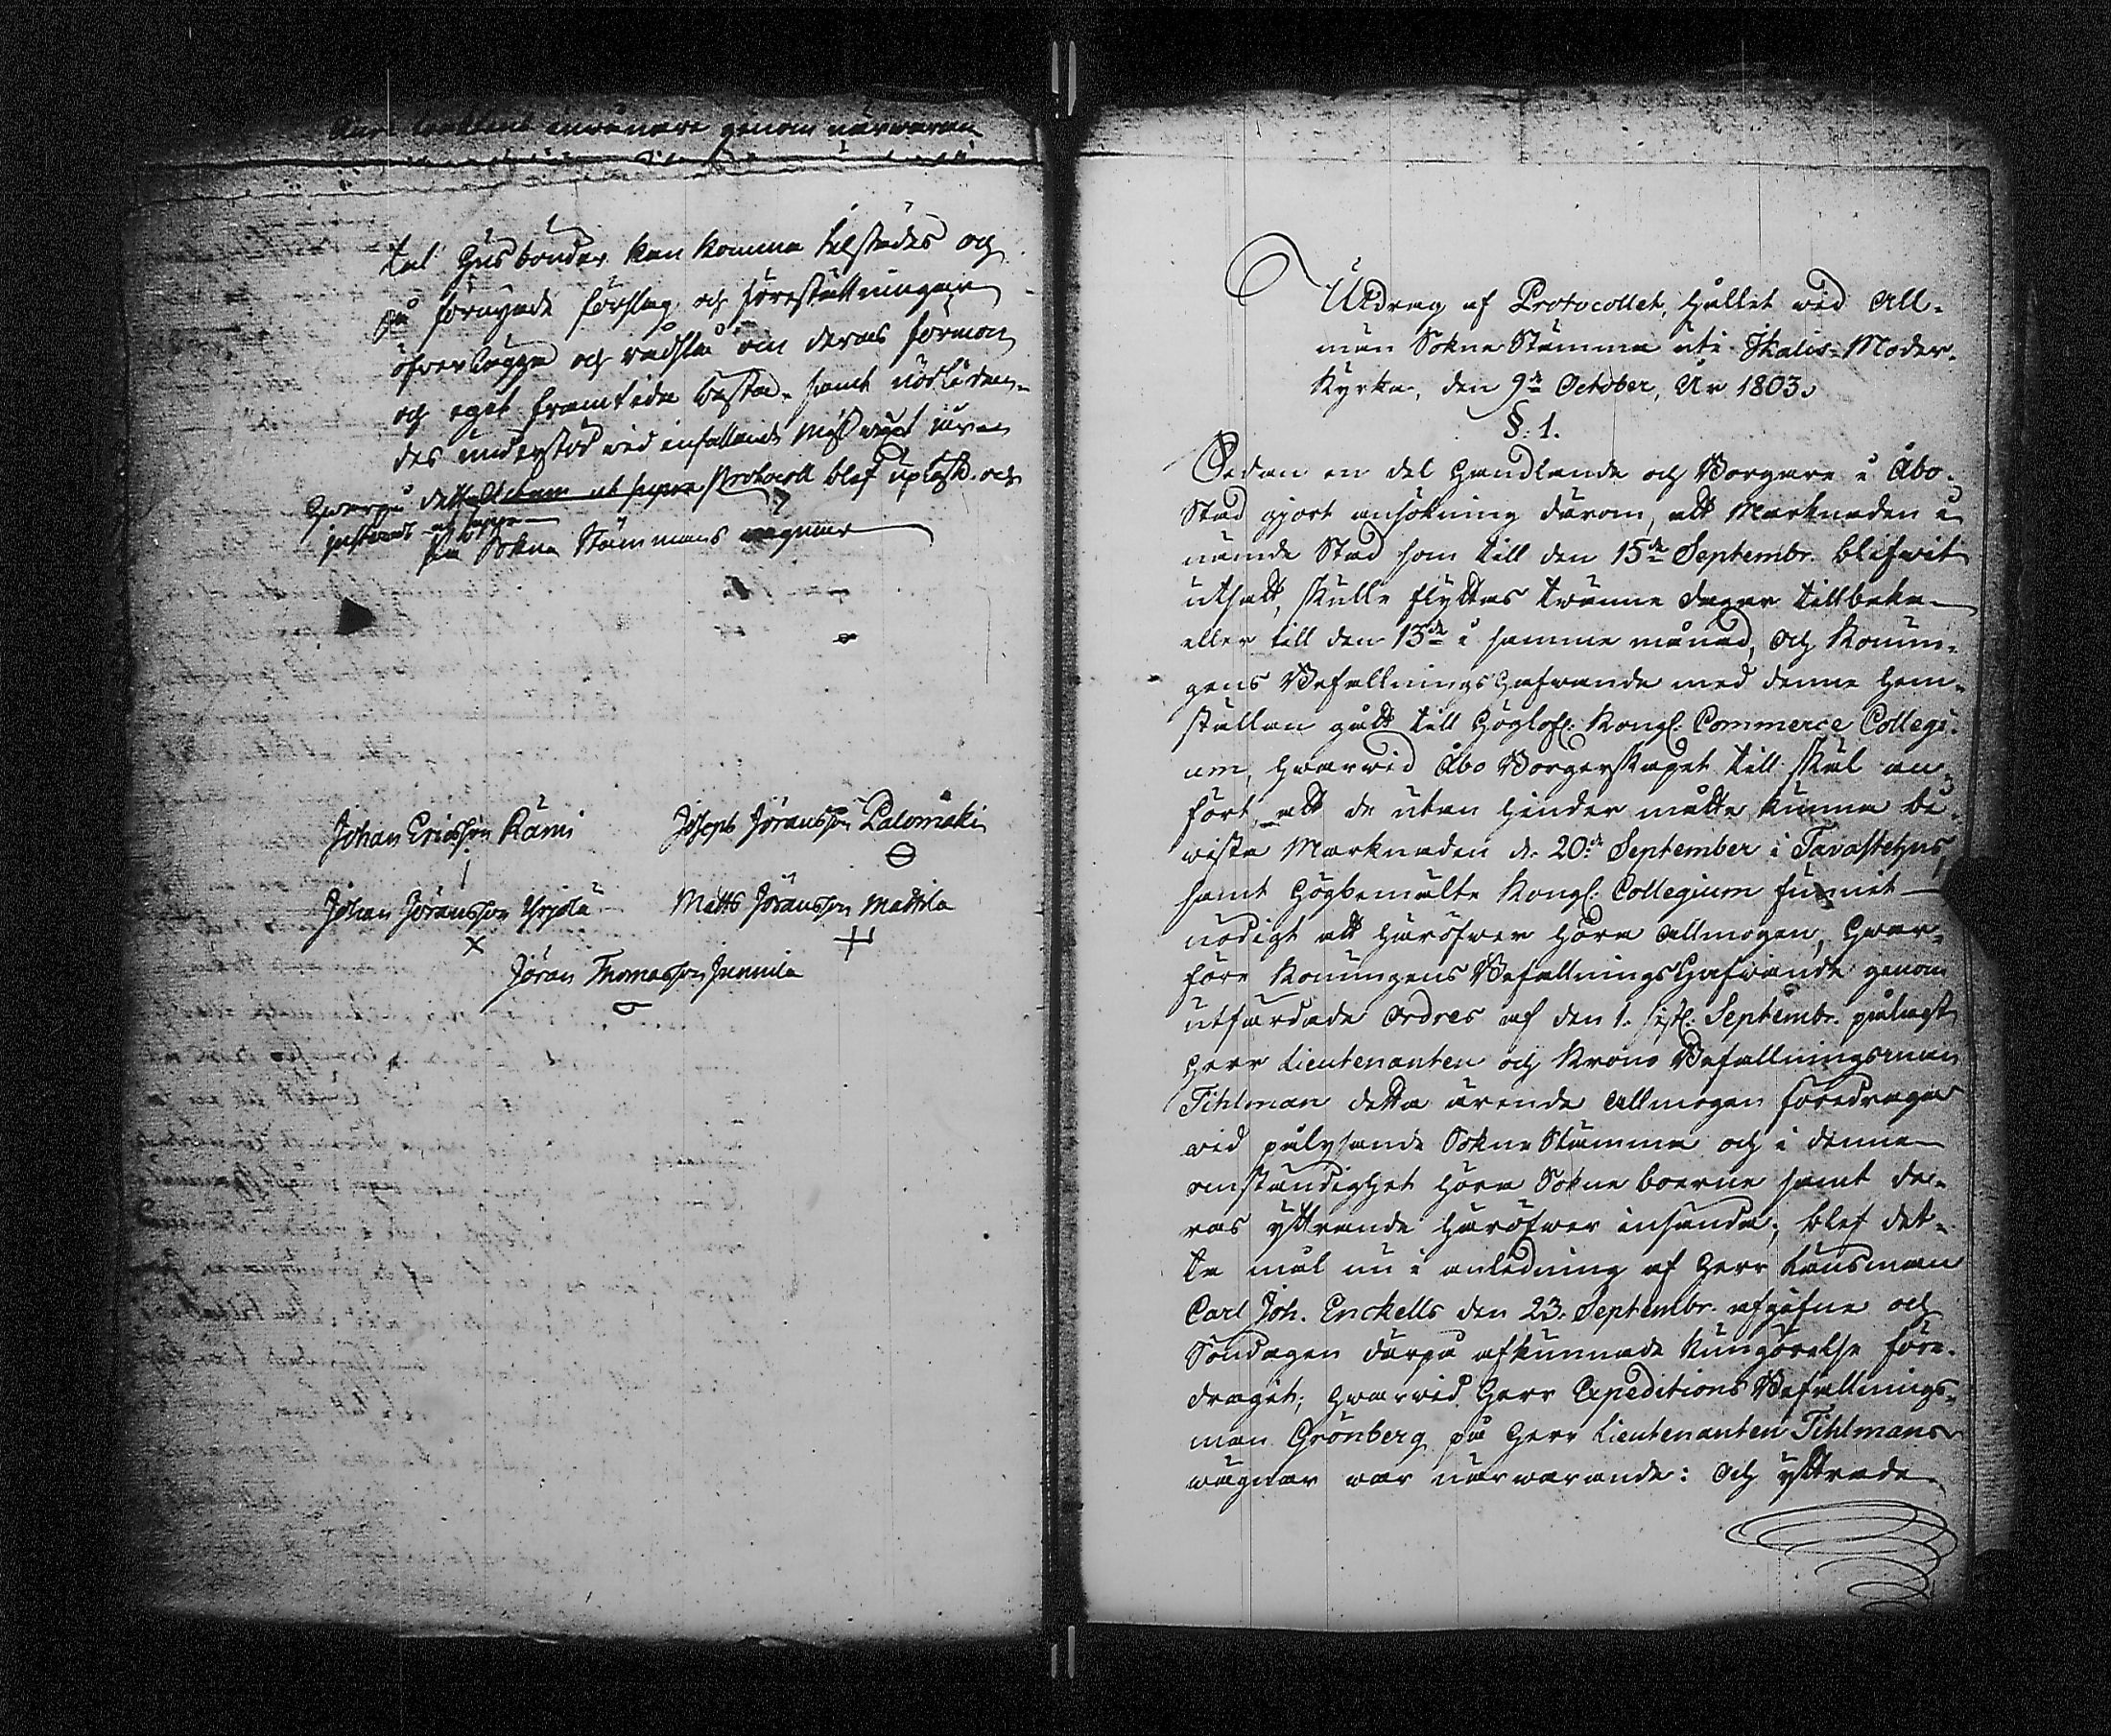 inwånare genom närwaran
tal Husbönder kan komma tilstädes och
på förnyade förslag och föreställningar
öfwerlägga och rådslå om deras förmon
och eget framtida bestå, samt nödlidan-
des understöd wid infallande Missväxt åren
Hwarpå detta Protocoll blef upläst och
justerat ut supra
på Sokne Stämmans wägnar
Johan Ericsson Rämi Joseph Jöransson Palomäki
Johan Jöransson Yrjölä Matts Jöransson Mattila
Jöran Thomasson Junnila
Utdrag af Protocollet, hållet wid All-
män Sokne Stämma uti Ikalis Moder-
Kyrka, den 9de October, År 1803.
§. 1.
Sedan en del Handlande och Borgare i Åbo
Stad gjort ansökning därom, att Marknaden i
nämde Stad som till den 15de Septembr. blifwit
utsatt, skulle flyttas twänne dagar tillbaka
eller till den 13de i samma månad, och Konun-
gens Befallningshafwande med denne hem-
stællan gått till Höglofl. Kongl. Commerce Collegi-
um, hwarwid Åbo Borgerskapet till skäl an-
fört, att de utan hinder måtte kunna be-
wista Marknaden d. 20de September i Tavastehus,
samt Högbemälte Kongl. Collegium funnit
nödigt att häröfwer höra Allmogen, Hwar-
före Konungens Befallningshafwande genom
utfärdade Ordres af den 1. sistl. Septembr. pålagt
Herr Lieutenanten och Krono Befallningsman
Tihlman detta ärende Allmogen föredraga
wid pålysande Sokne Stämma och i denna
omständighet höra Sokneboerne samt de-
ras yttrande häröfwer insända; blef det-
ta mål nu i anledning af Herr Länsman
Carl Joh. Enckells den 23. Septembr. afgifne och
Söndagen därpå afkunnade Kungörelse före-
dragit; hwarwid Herr Expeditions Befallnings-
man Grönberg på Herr Lieutenanten Tihlmans
wägnar war närwarande: Och yttrade